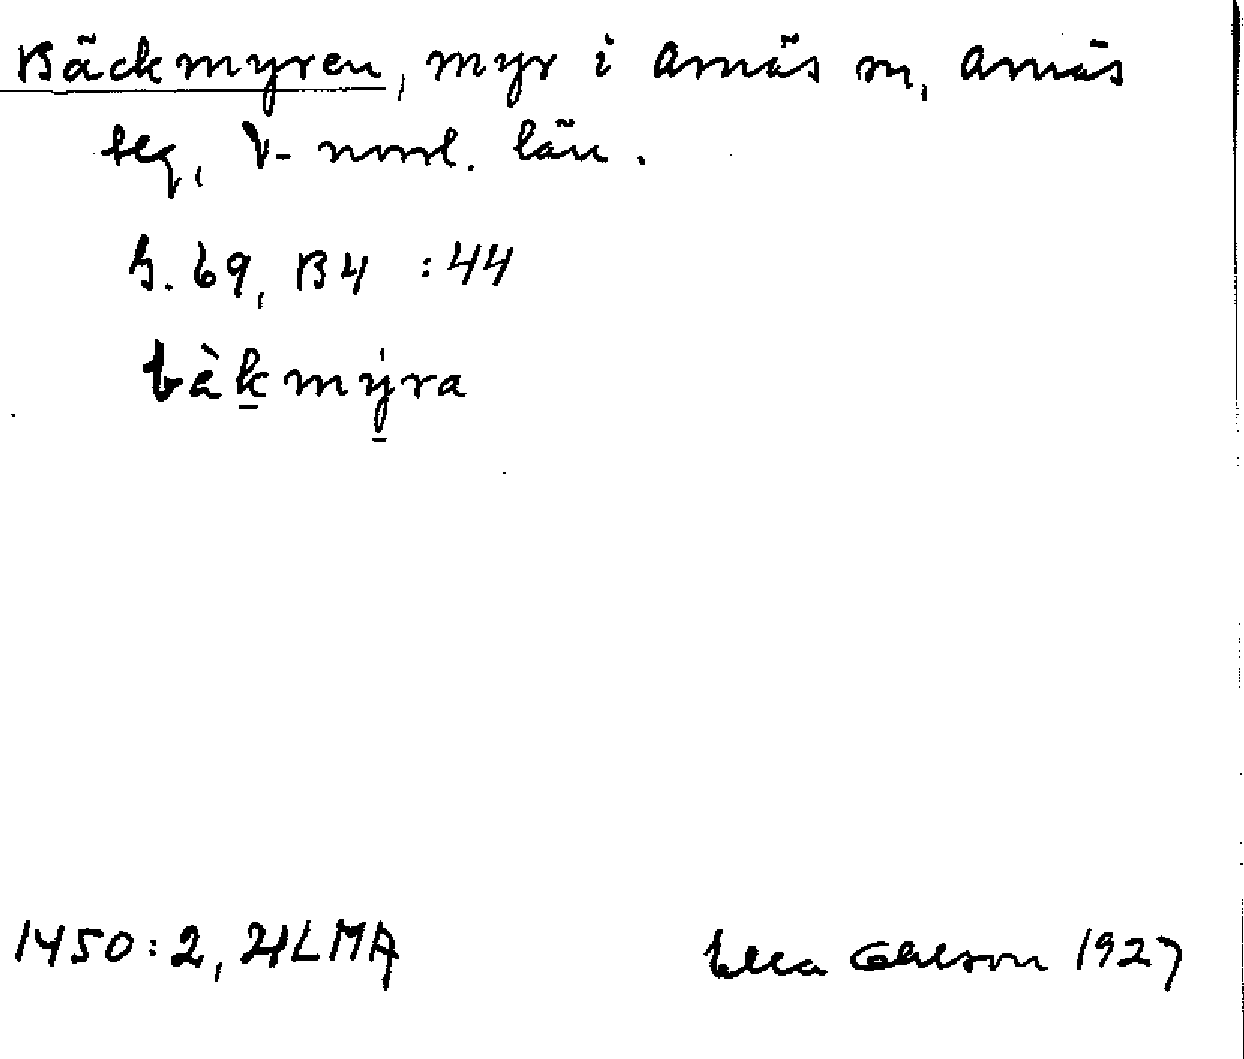 Bäckmyren, myr i Arnäs sn, Arnäs
tlg, V-norrl. län.
h. 69, B4 :44
bàkmy̍ra
1450:2, ULMA
Ella Ohlson 1927